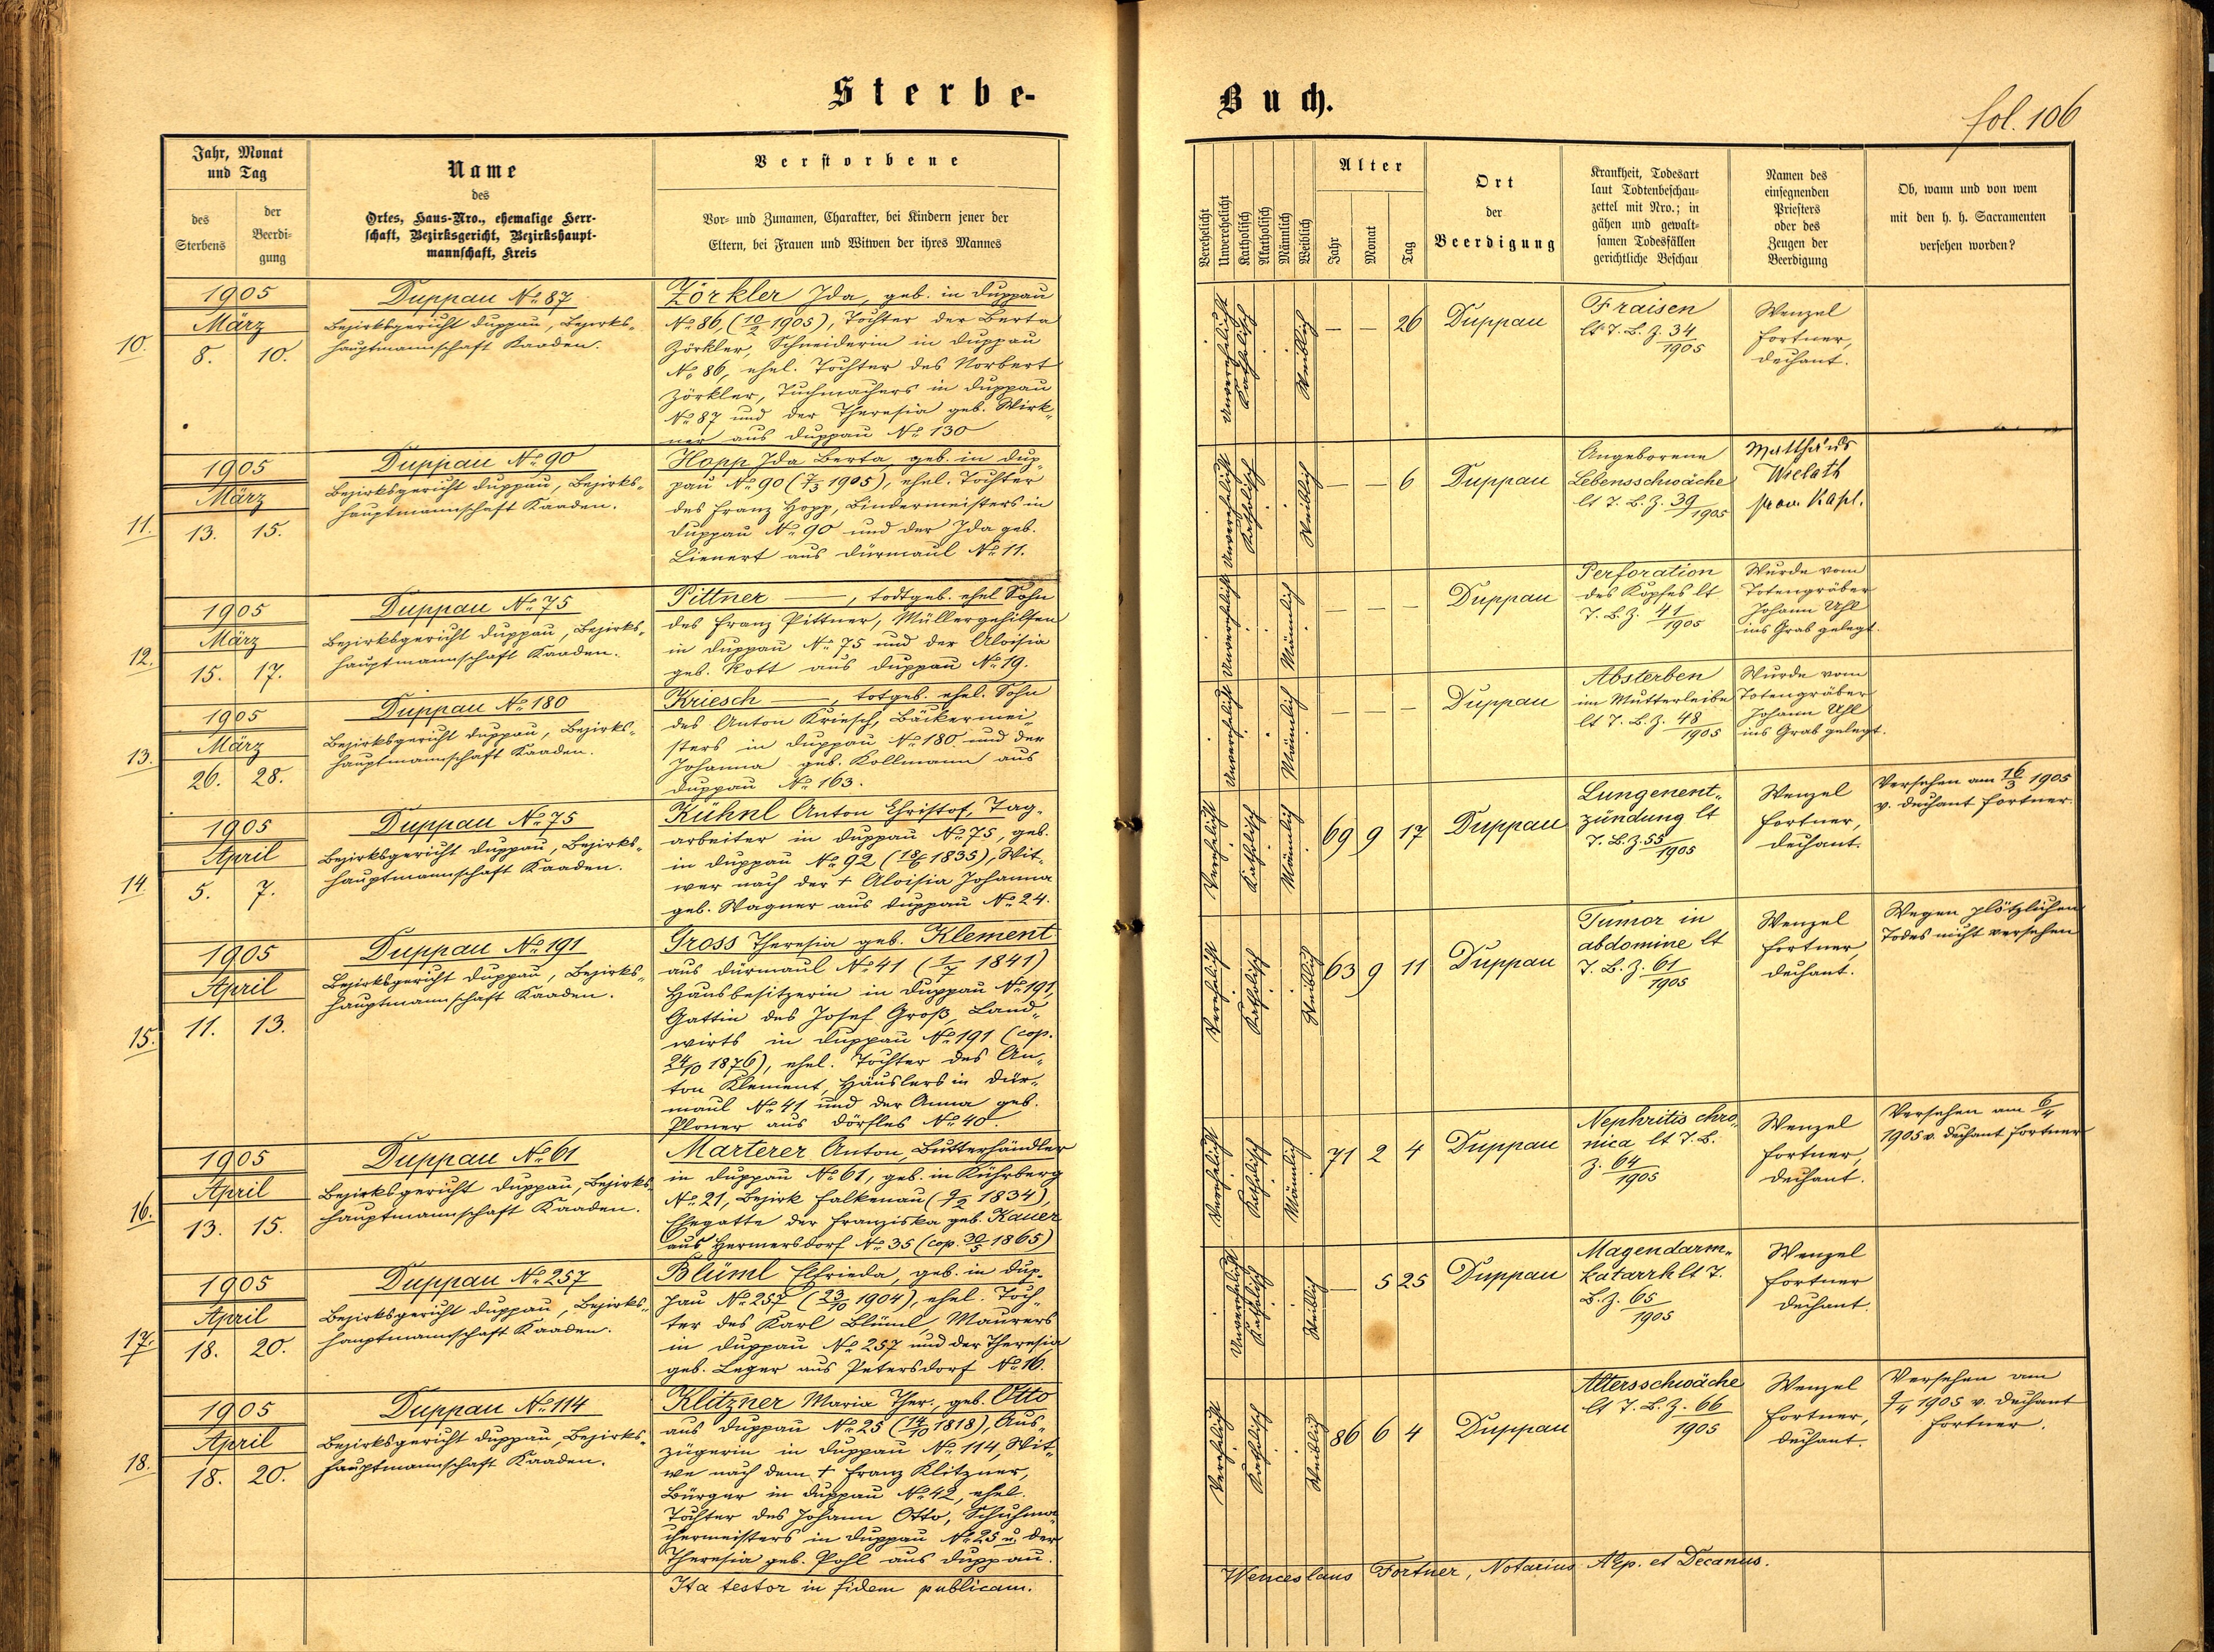 Sterbe-
Buch.
fol. 106
Jahr, Monat
und Tag
des
Sterbens
der
Beerdi-
gung
Name
des
Ortes, Haus-Nro., ehemalige Herr-
schaft, Bezirksgericht, Bezirkshaupt-
mannschaft, Kreis
Verstorbene
Vor- und Zunamen, Charakter, bei Kindern jener der
Eltern, bei Frauen und Witwen der ihres Mannes
Verehelicht
Unverehelicht
Katholisch
Akatholisch
Männlich
Weiblich
Alter
Jahr
Monat
Tag
Ort
der
Beerdigung
Krankheit, Todesart
laut Todtenbeschau-
zettel mit Nro.; in
gähen und gewalt-
samen Todesfällen
gerichtliche Beschau
Namen des
einsegnenden
Priesters
oder des
Zeugen der
Beerdigung
Ob, wann und von wem
mit den h. h. Sacramenten
versehen worden?
10.
1905
März
8. 10.
Duppau No 87
Bezirksgericht Duppau, Bezirks-
hauptmannschaft Kaaden.
Zörkler Ida, geb. in Duppau
No 86, (10/2 1905), Tochter der Berta
Zörkler, Schneiderin in Duppau
No 86, ehel. Tochter des Norbert
Zörkler, Tuchmachers in Duppau
No 87 und der Theresia geb. Wirk-
ner aus Duppau No 130
Unverehelicht
Katholisch
Weiblich
— — 26
Duppau
Fraisen
lt T. B. Z. 34/1905
Wenzel
Fortner,
Dechant.
11.
1905
März
13. 15.
Duppau No 90
Bezirksgericht Duppau, Bezirks-
hauptmannschaft Kaaden.
Hopp Ida Berta, geb. in Dup-
pau No 90 (7/3 1905), ehel. Tochter
des Franz Hopp, Bindermeisters in
Duppau No 90 und der Ida geb.
Lienert aus Dürmaul No 11.
Unverehelicht
Katholisch
Weiblich
— — 6
Duppau
Angeborene
Lebensschwäche
lt T. B. Z. 39/1905
Matthäus
Wielath
prov. Kapl.
12.
1905
März
15. 17.
Duppau No 75
Bezirksgericht Duppau, Bezirks-
hauptmannschaft Kaaden.
Pittner —, todtgeb. ehel Sohn
des Franz Pittner, Müllergehilfen
in Duppau No 75 und der Aloisia
geb. Kott aus Duppau No 19.
Unverehelicht
Männlich
— — —
Duppau
Perforation
des Kopfes lt
T. B. Z. 41/1905
Wurde vom
Totengräber
Johann Uhl
ins Grab gelegt.
13.
1905
März
26. 28.
Duppau No 180
Bezirksgericht Duppau, Bezirks-
hauptmannschaft Kaaden.
Kriesch —, totgeb. ehel. Sohn
des Anton Kriesch, Bäckermei-
sters in Duppau No 180 und der
Johanna geb. Kollmann aus
Duppau No 163.
Unverehelicht
Männlich
— — —
Duppau
Absterben
im Mutterleibe
lt T. B. Z. 48/1905
Wurde vom
Totengräber
Johann Uhl
ins Grab gelegt.
14.
1905
April
5. 7.
Duppau No 75
Bezirksgericht Duppau, Bezirks-
hauptmannschaft Kaaden.
Kühnl Anton Christof, Tag-
arbeiter in Duppau No 75, geb.
in Duppau No 92 (18/6 1835), Wit-
wer nach der † Aloisia Johanna
geb. Wagner aus Duppau No 24.
Verehelicht
Katholisch
Männlich
69 9 17
Duppau
Lungenent-
zündung lt
T. B. Z. 55/1905
Wenzel
Fortner,
Dechant.
Versehen am 16/3 1905
v. Dechant Fortner.
15.
1905
April
11. 13.
Duppau No 191
Bezirksgericht Duppau, Bezirks-
hauptmannschaft Kaaden.
Gross Theresia geb. Klement
aus Dürmaul No 41 (1/7 1841)
Hausbesitzerin in Duppau No 191,
Gattin des Josef Groß, Land-
wirts in Duppau No 191 (cop.
24/10 1876), ehel. Tochter des An-
ton Klement, Häuslers in Dür-
maul No 41 und der Anna geb.
Ploner aus Dörfles No 40.
Verehelicht
Katholisch
Weiblich
63 9 11
Duppau
Tumor in
abdomine lt
T. B. Z. 61/1905
Wenzel
Fortner,
Dechant.
Wegen plötzlichen
Todes nicht versehen
16.
1905
April
13. 15.
Duppau No 61
Bezirksgericht Duppau, Bezirks-
hauptmannschaft Kaaden.
Marterer Anton, Butterhändler
in Duppau No 61, geb. in Kührberg
No 21, Bezirk Falkenau (9/2 1834),
Ehegatte der Franziska geb. Kauer
aus Hermersdorf No 35 (cop. 30/5 1865)
Verehelicht
Katholisch
Männlich
71 2 4
Duppau
Nephritis chro-
nica lt T. B.
Z. 64/1905
Wenzel
Fortner,
Dechant.
Versehen am 6/4
1905 v. Dechant Fortner
17.
1905
April
18. 20.
Duppau No 257
Bezirksgericht Duppau, Bezirks-
hauptmannschaft Kaaden.
Blüml Elfrieda, geb. in Dup-
pau No 257 (23/10 1904), ehel. Toch-
ter des Karl Blüml, Maurers
in Duppau No 257 und der Theresia
geb. Leger aus Petersdorf No 16.
Unverehelicht
Katholisch
Weiblich
— 5 25
Duppau
Magendarm-
katarrh lt T.
B. Z. 65/1905
Wenzel
Fortner
Dechant.
18.
1905
April
18. 20.
Duppau No 114
Bezirksgericht Duppau, Bezirks-
hauptmannschaft Kaaden.
Klitzner Maria Ther., geb. Otto
aus Duppau No 25 (14/10 1818), Aus-
zügerin in Duppau No 114, Wit-
we nach dem † Franz Klitzner,
Bürger in Duppau No 42, ehel.
Tochter des Johann Otto, Schuhma-
chermeisters in Duppau No 25 u. der
Theresia geb. Pohl aus Duppau.
Verehelicht
Katholisch
Weiblich
86 6 4
Duppau
Altersschwäche
lt T. B. Z. 66
1905
Wenzel
Fortner,
Dechant.
Versehen am
9/4 1905 v. Dechant
Fortner.
Ita testor in fidem publicam.
Wenceslaus Fortner, Notarius AEp. et Decanus.